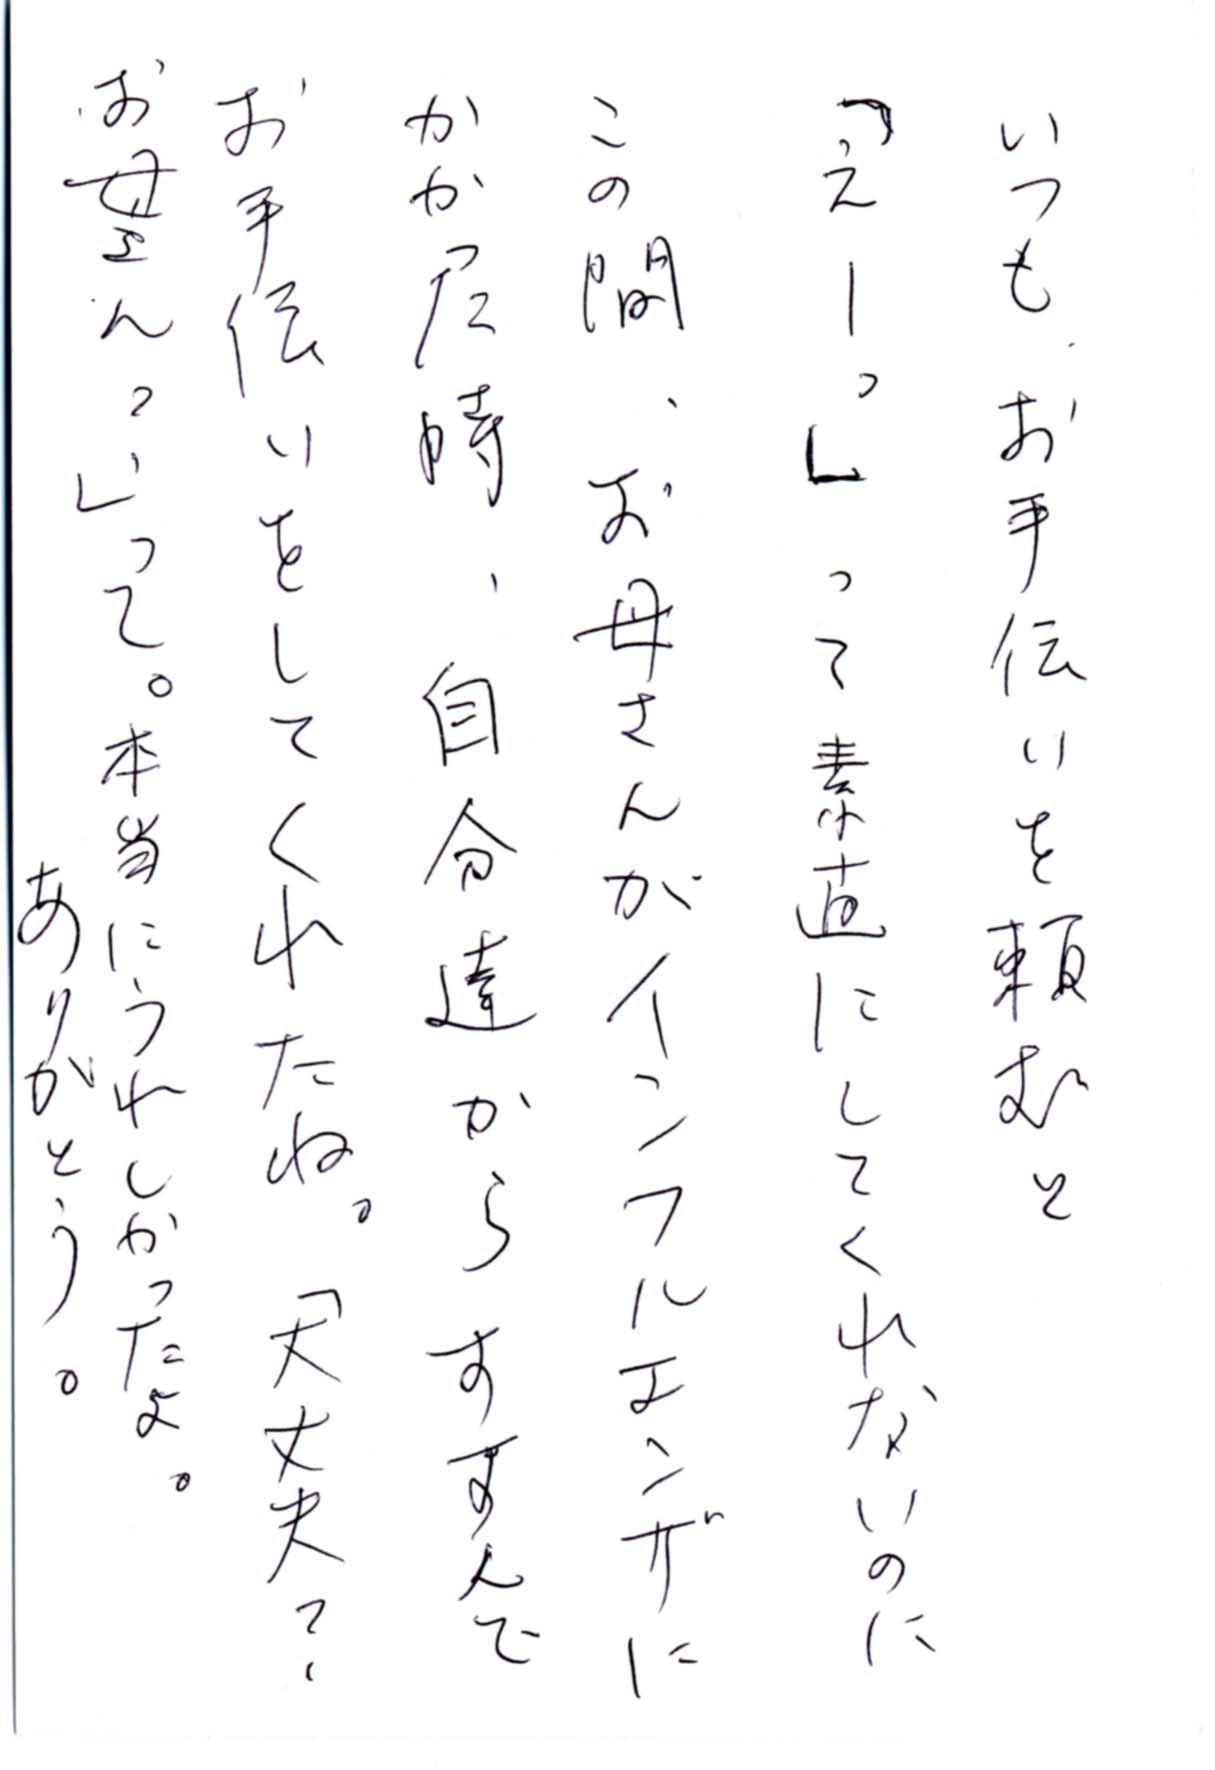 いつも、お手伝いを頼むと
「えーっ」って素直にしてくれないのに
この間、お母さんがインフルエンザに
かかた時、自分達からすすんで
お手伝いをしてくれたね。「大丈夫？
お母さん？」って。本当にうれしかったよ。
ありがとう。